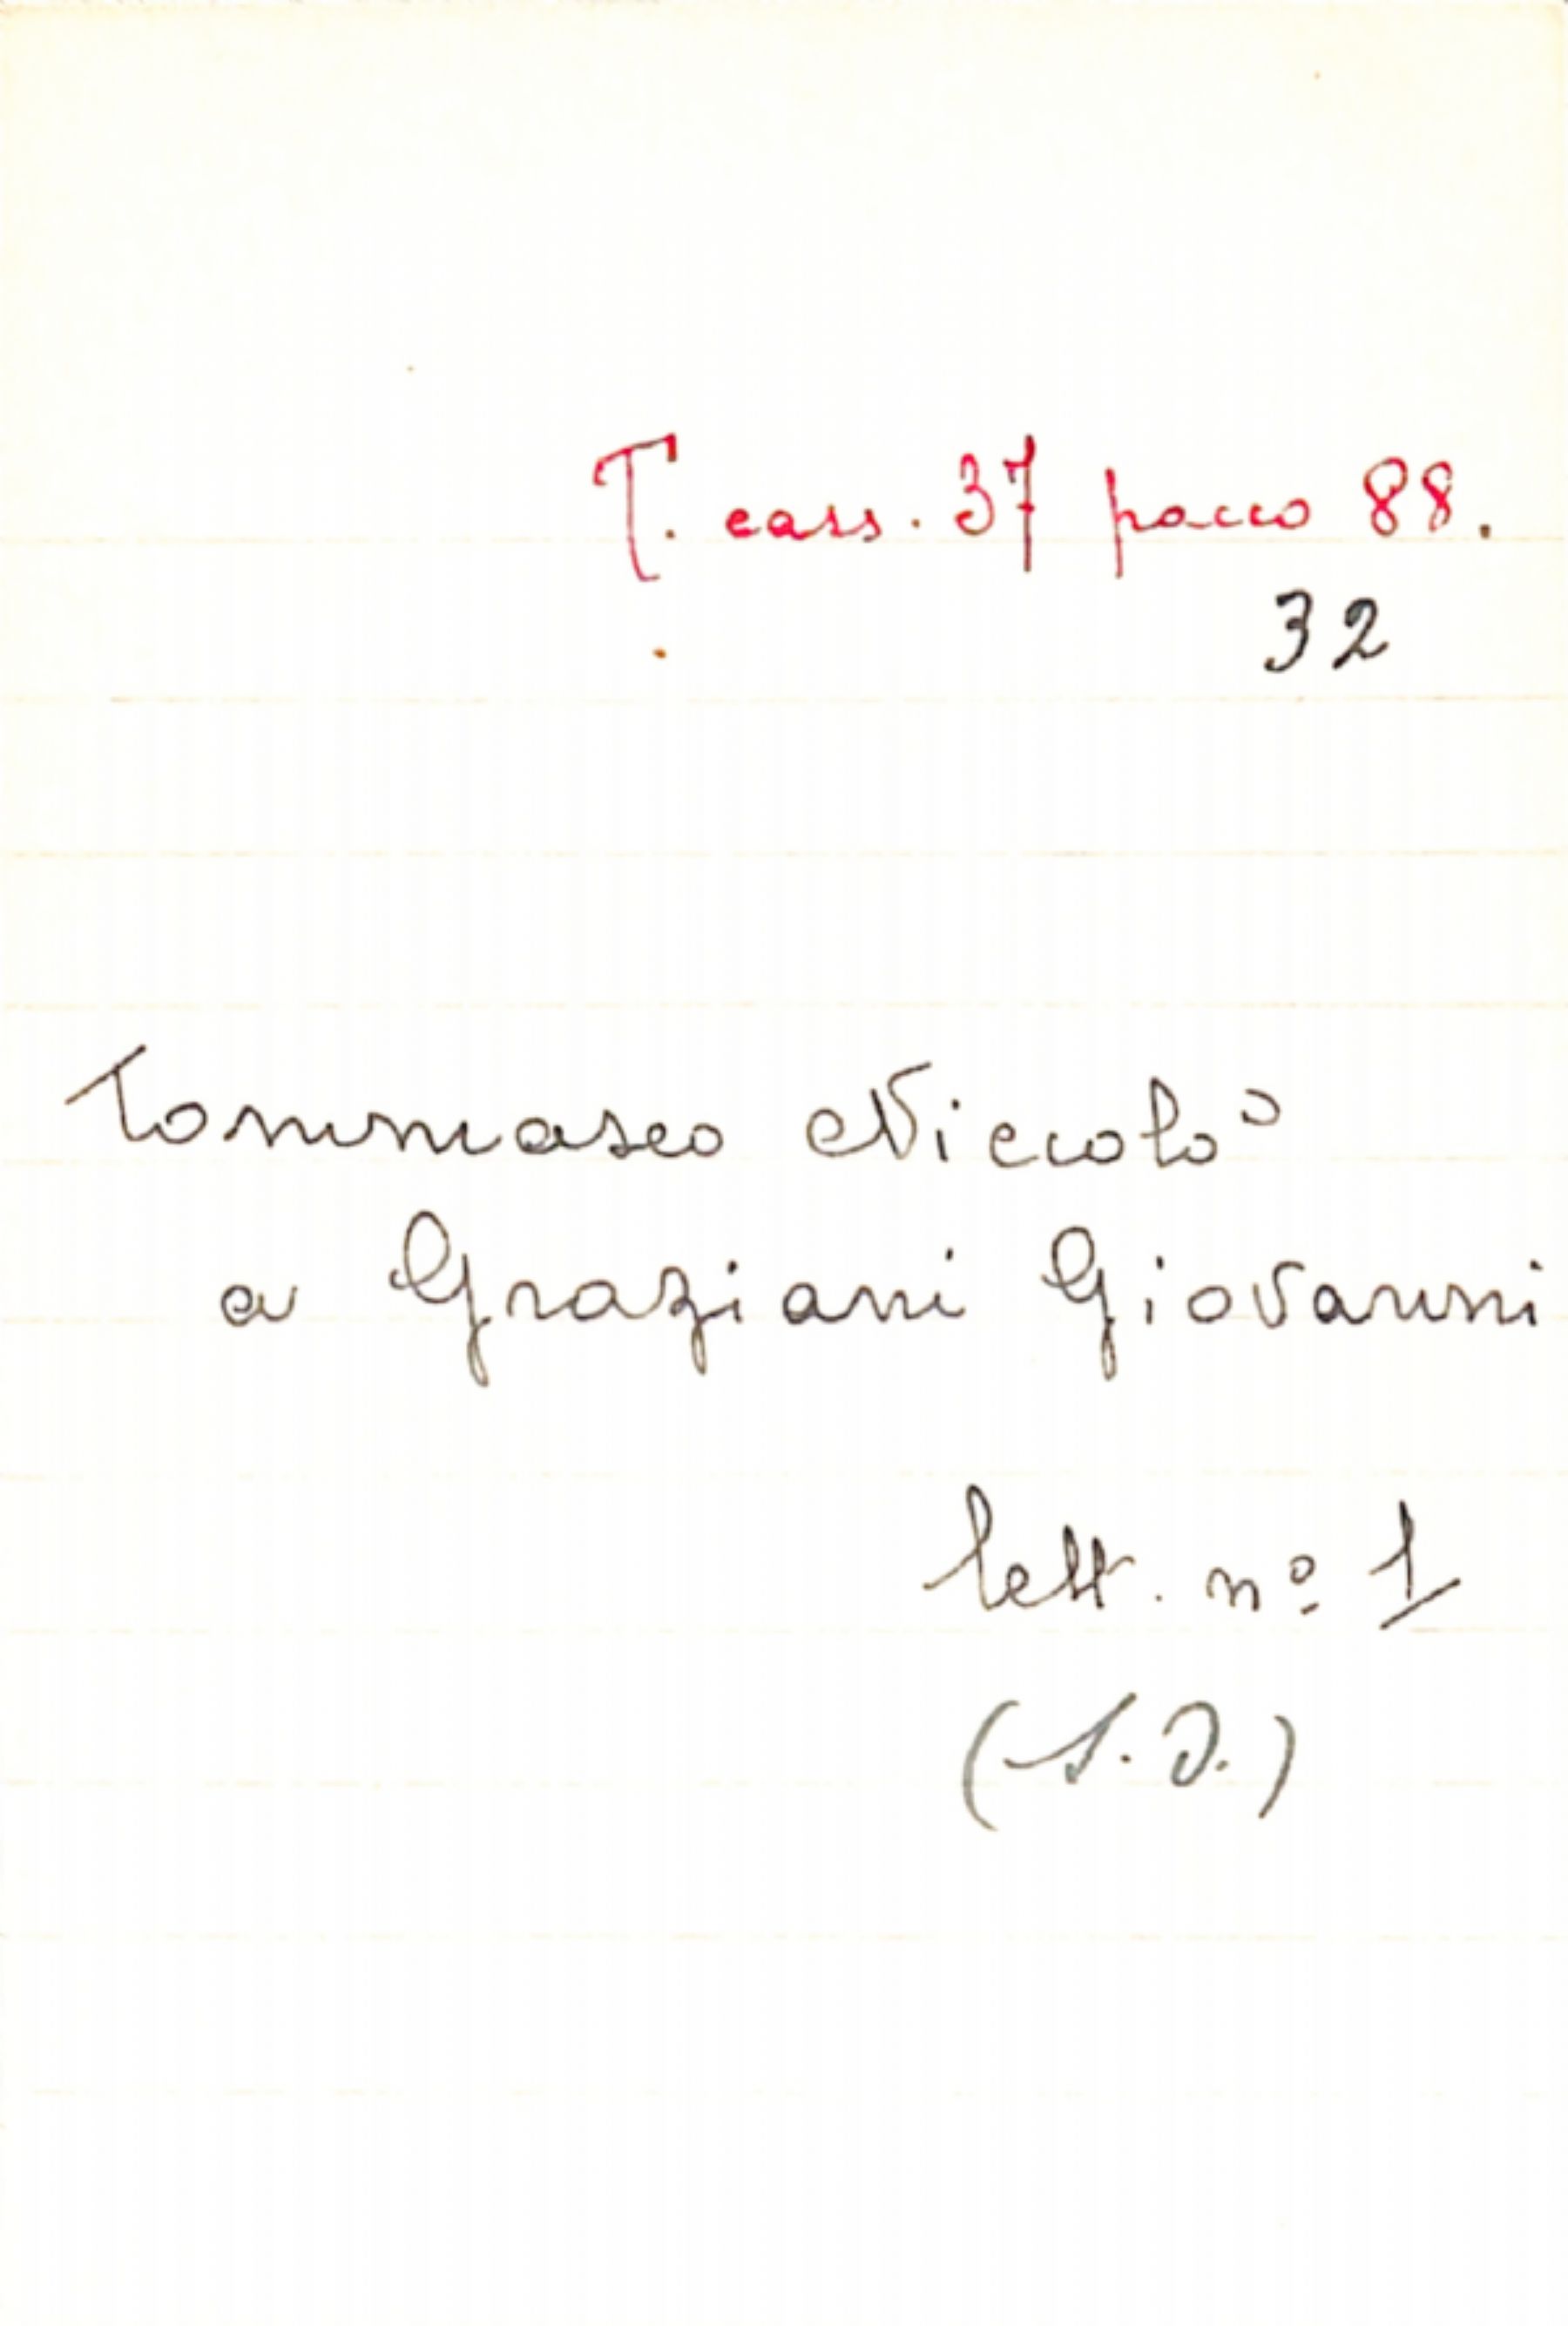 T. cass. 37 pacco 88.
32
Tommaseo Niccolò
a Graziani Giovanni
lett. nº 1
(S.D.)